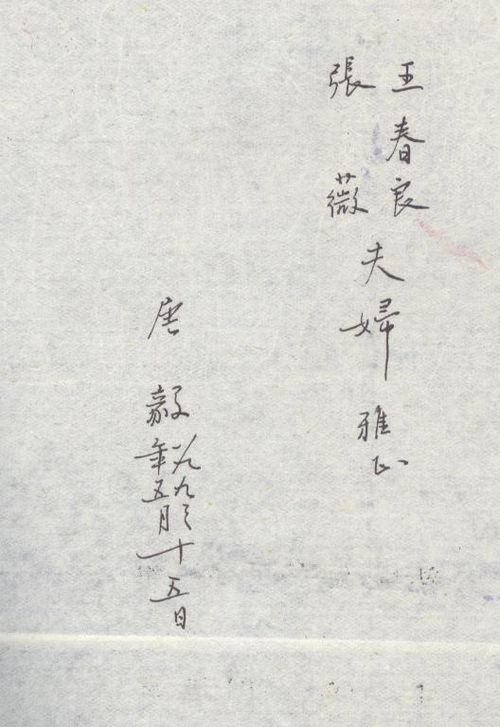 王春良
張薇
夫婦 雅正
唐毅
一九九三
年五月
十五日